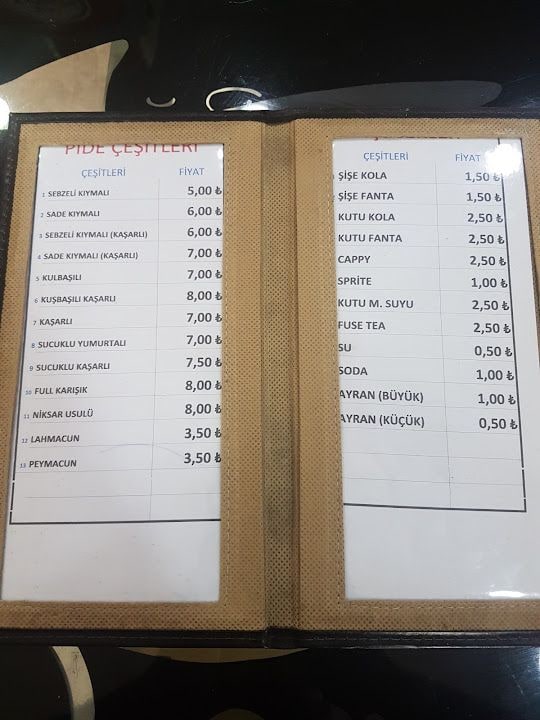 PİDE ÇEŞİTLERİ
ÇEŞİTLERİ FİYAT
1 SEBZELİ KIYMALI 5,00 ₺
2 SADE KIYMALI 6,00 ₺
3 SEBZELİ KIYMALI (KAŞARLI) 6,00 ₺
4 SADE KIYMALI (KAŞARLI) 7,00 ₺
5 KULBAŞILI 7,00 ₺
6 KUŞBAŞILI KAŞARLI 8,00 ₺
7 KAŞARLI 7,00 ₺
8 SUCUKLU YUMURTALI 7,00 ₺
9 SUCUKLU KAŞARLI 7,50 ₺
10 FULL KARIŞIK 8,00 ₺
11 NİKSAR USULÜ 8,00 ₺
12 LAHMACUN 3,50 ₺
13 PEYMACUN 3,50 ₺
ÇEŞİTLERİ FİYAT
ŞİŞE KOLA 1,50 ₺
ŞİŞE FANTA 1,50 ₺
KUTU KOLA 2,50 ₺
KUTU FANTA 2,50 ₺
CAPPY 2,50 ₺
SPRİTE 1,00 ₺
KUTU M. SUYU 2,50 ₺
FUSE TEA 2,50 ₺
SU 0,50 ₺
SODA 1,00 ₺
AYRAN (BÜYÜK) 1,00 ₺
AYRAN (KÜÇÜK) 0,50 ₺